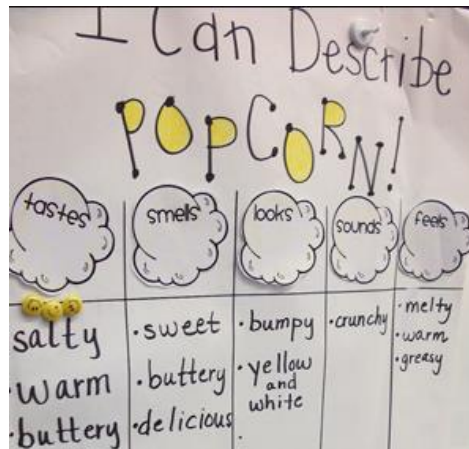 I Can Describe
POPCORN!
tastes
smells
looks
sounds
feels
salty
• warm
• buttery
• sweet
• buttery
• delicious
• bumpy
• yellow
and
white
•
• crunchy
• melty
• warm
• greasy